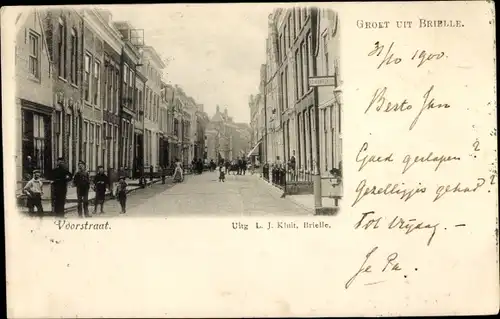 Groet uit Brielle.
31/10 1900.
Beste Jan
Goed geslapen?
Gezellig gehad?
Tot Vrijdag. —
Je Pa.
Voorstraat.
Uitg L. J. Kluit, Brielle.